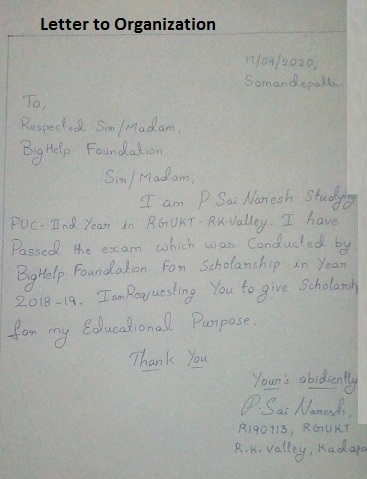 Letter to Organization
17/09/2020,
Somandepalli
To,
Respected Sir/Madam,
BigHelp Foundation
Sir/Madam,
I am P Sai Naresh Studying
PUC-IInd Year in RGUKT-RK-Valley. I have
Passed the exam which was Conducted by
BigHelp Foundation For Scholarship in Year
2018-19. I am Requesting You to give Scholarsh
for my Educational Purpose.
Thank You
Your's obidiently
P.Sai Naresh,
R190713, RGUKT
R.K. Valley, Kadapa